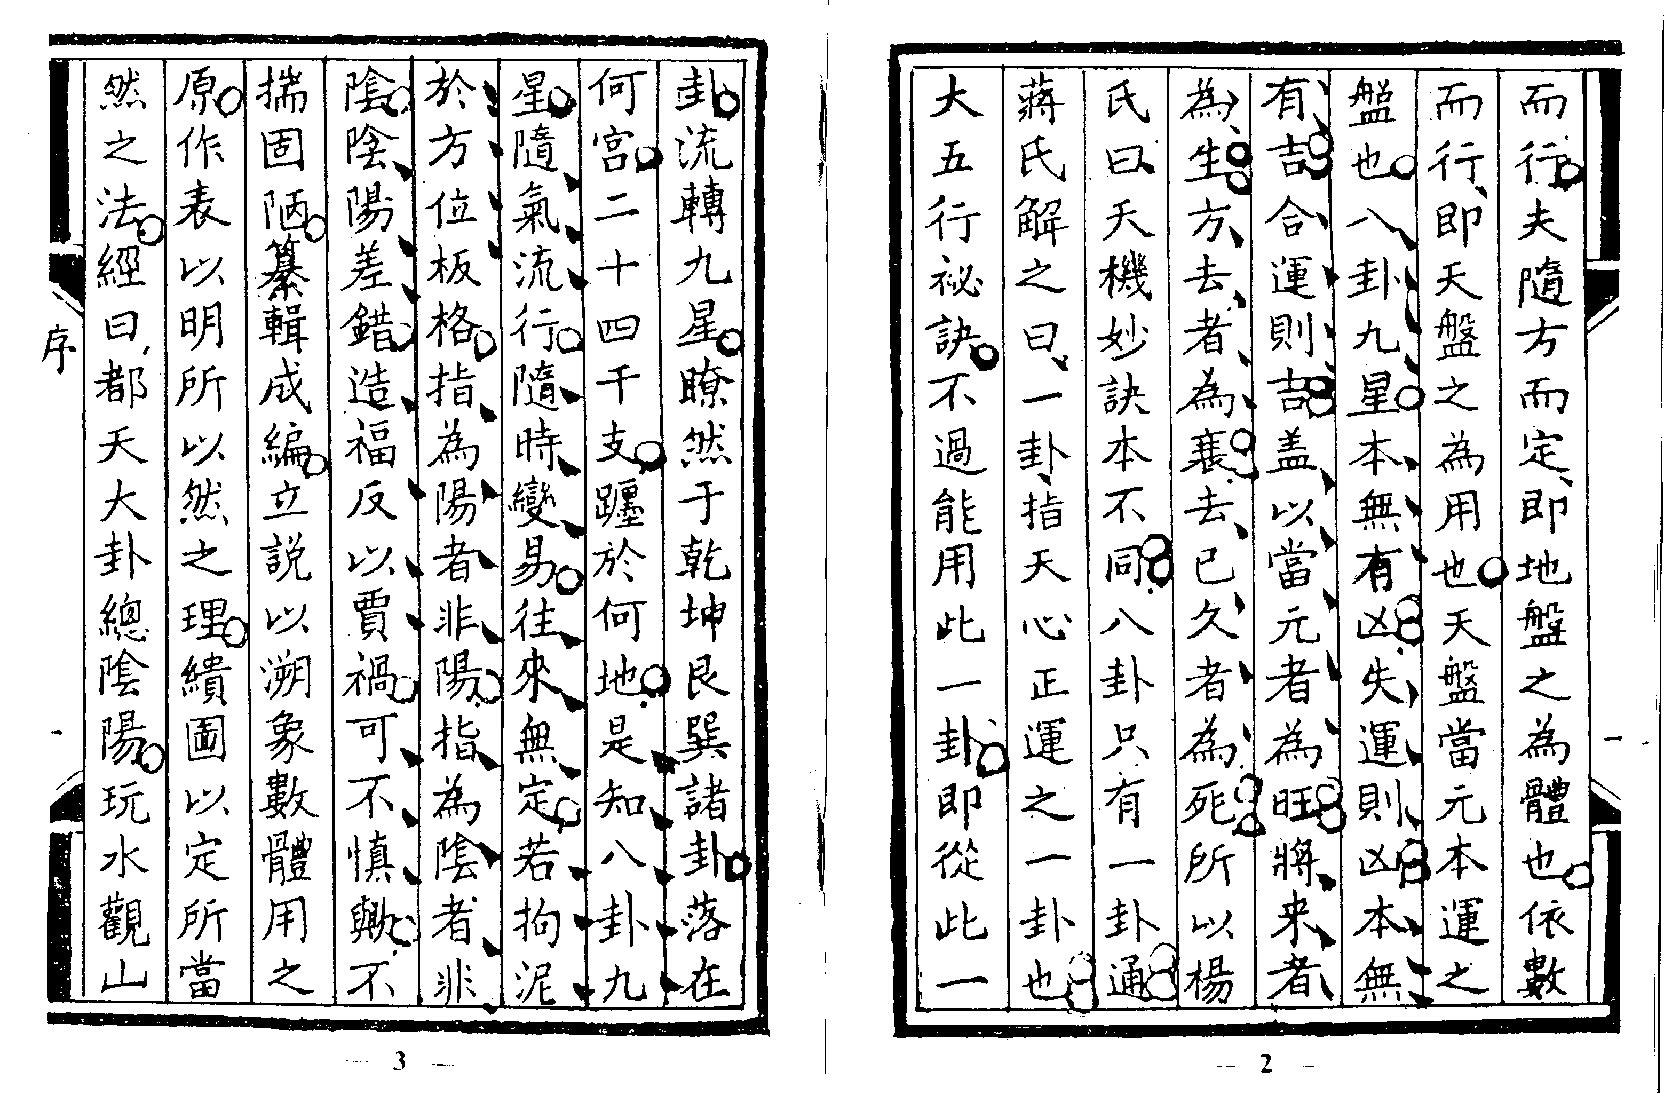 而行夫隨方而定即地盤之為體也依數
而行即天盤之為用也天盤當元本運之
盤也八卦九星本無有凶失運則凶本無
有吉合運則吉盖以當元者為旺將来者
為生方去者為衰去已久者為死所以楊
氏曰天機妙訣本不同八卦只有一卦通
蔣氏解之曰一卦指天心正運之一卦也
大五行祕訣不過能用此一卦即從此一
2
卦流轉九星瞭然于乾坤艮巽諸卦落在
何宮二十四干支躔於何地是知八卦九
星隨氣流行隨時變易往來無定若拘泥
於方位板格指為陽者非陽指為陰者非
陰陰陽差錯造福反以賈禍可不慎歟不
揣固陋纂輯成編立説以溯象數體用之
原作表以明所以然之理繢圖以定所當
然之法經曰都天大卦總陰陽玩水觀山
序
3